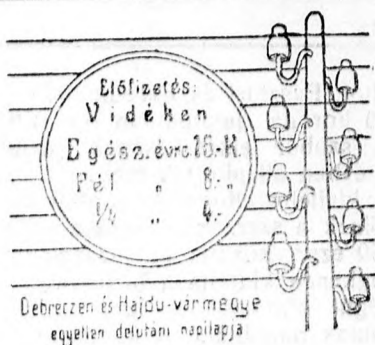 Előfizetés:
Vidéken
Egész.évre 16.-K.
Fél „ 8.-„
¼ „ 4.-
Debreczen és Hajdu-vármegye
egyetlen delutáni napilapja